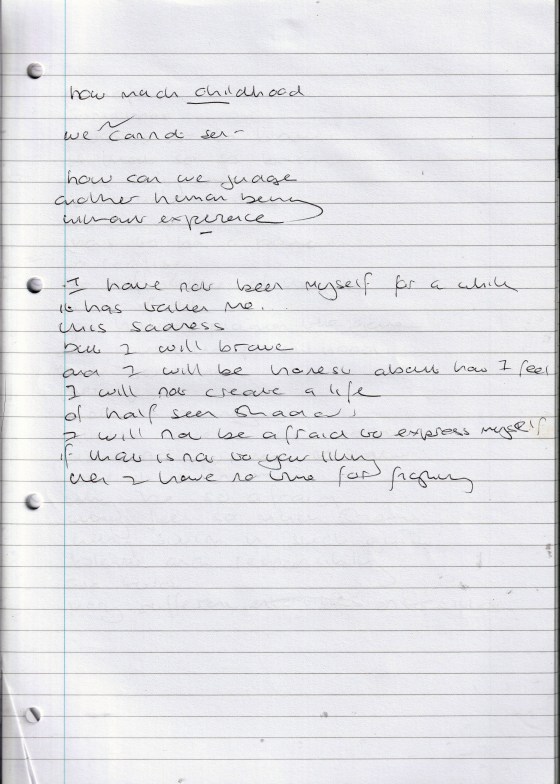 how much childhood
we cannot see -
how can we judge
another human being
without experience
I have not been myself for a while
it has taken me.
this sadness
but I will brave
and I will be honest about how I feel
I will not create a life
of half seen shadows
I will not be afraid to express myself
if that is not to your liking
then I have no time for